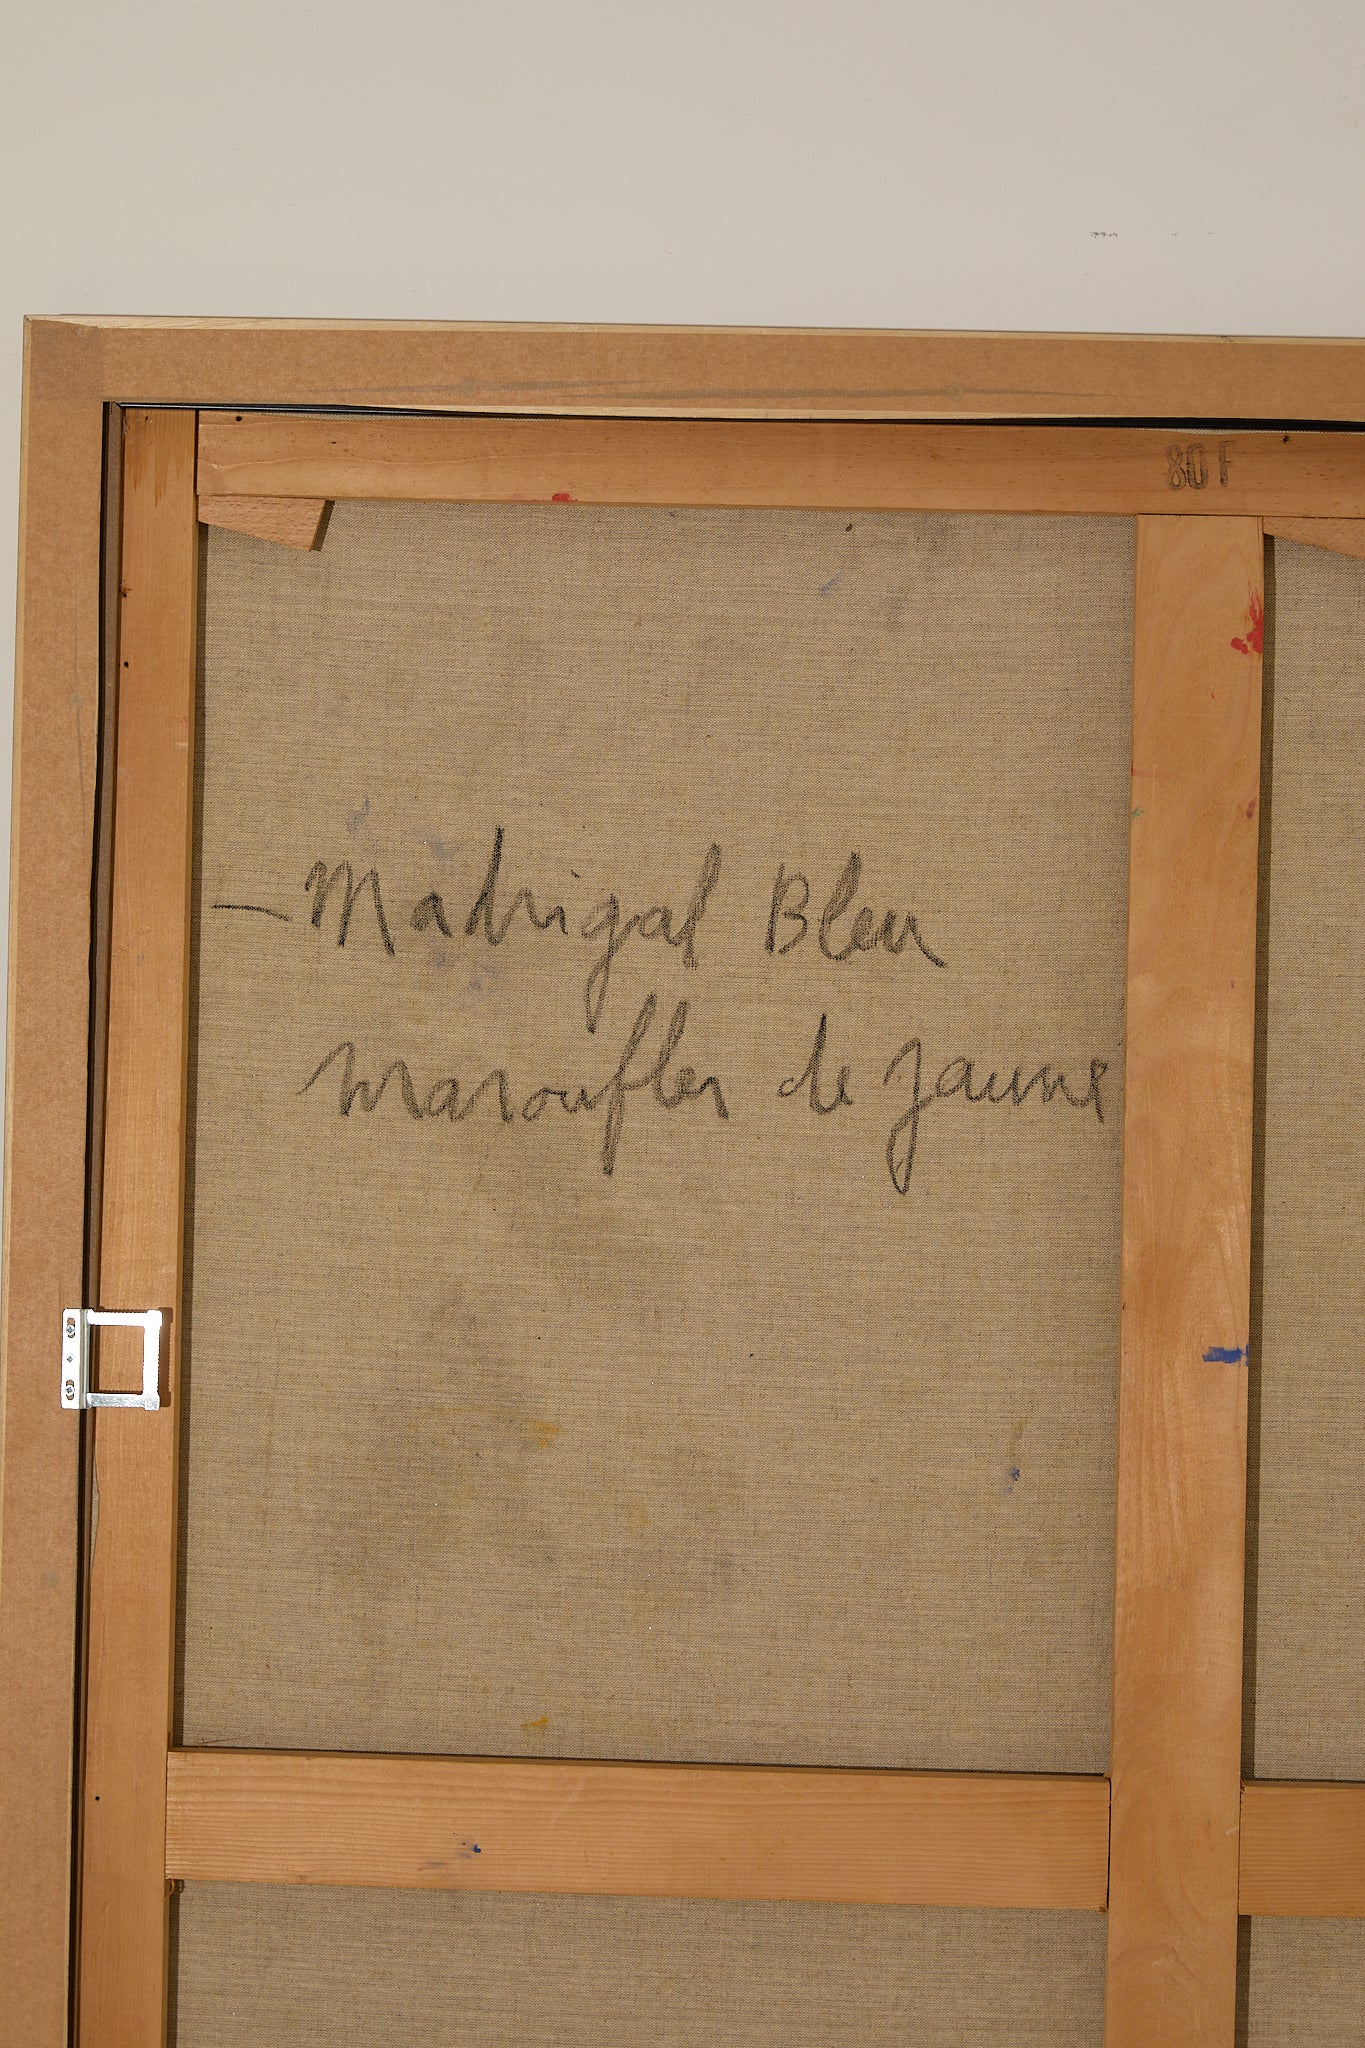 80 F
— Madrigal Bleu
maroufler de jaune